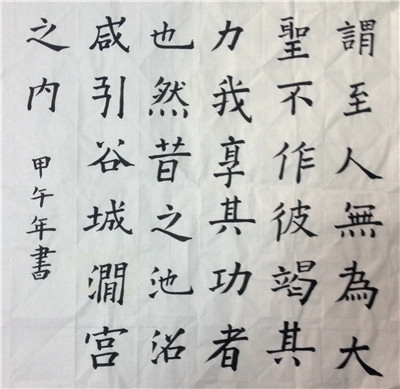 謂至人無為大
聖不作彼竭其
力我享其功者
也然昔之池沼
咸引谷城澗宮
之内
甲午年書